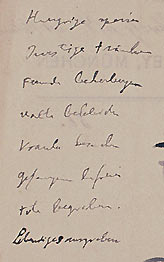 Hungrige speisen
Durstige tränken
Fremde beherbergen
nackte bekleiden
Kranke besuchen
gefangene befreien
tote begraben.
Lebendige ausgraben